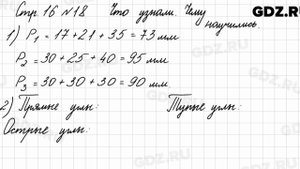 Стр. 16 №18 Что узнали. Чему
научились
1) P₁ = 17 + 21 + 35 = 73 мм
P₂ = 30 + 25 + 40 = 95 мм
P₃ = 30 + 30 + 30 = 90 мм
2) Прямые углы: Тупые углы:
Острые углы:
GDZ.RU